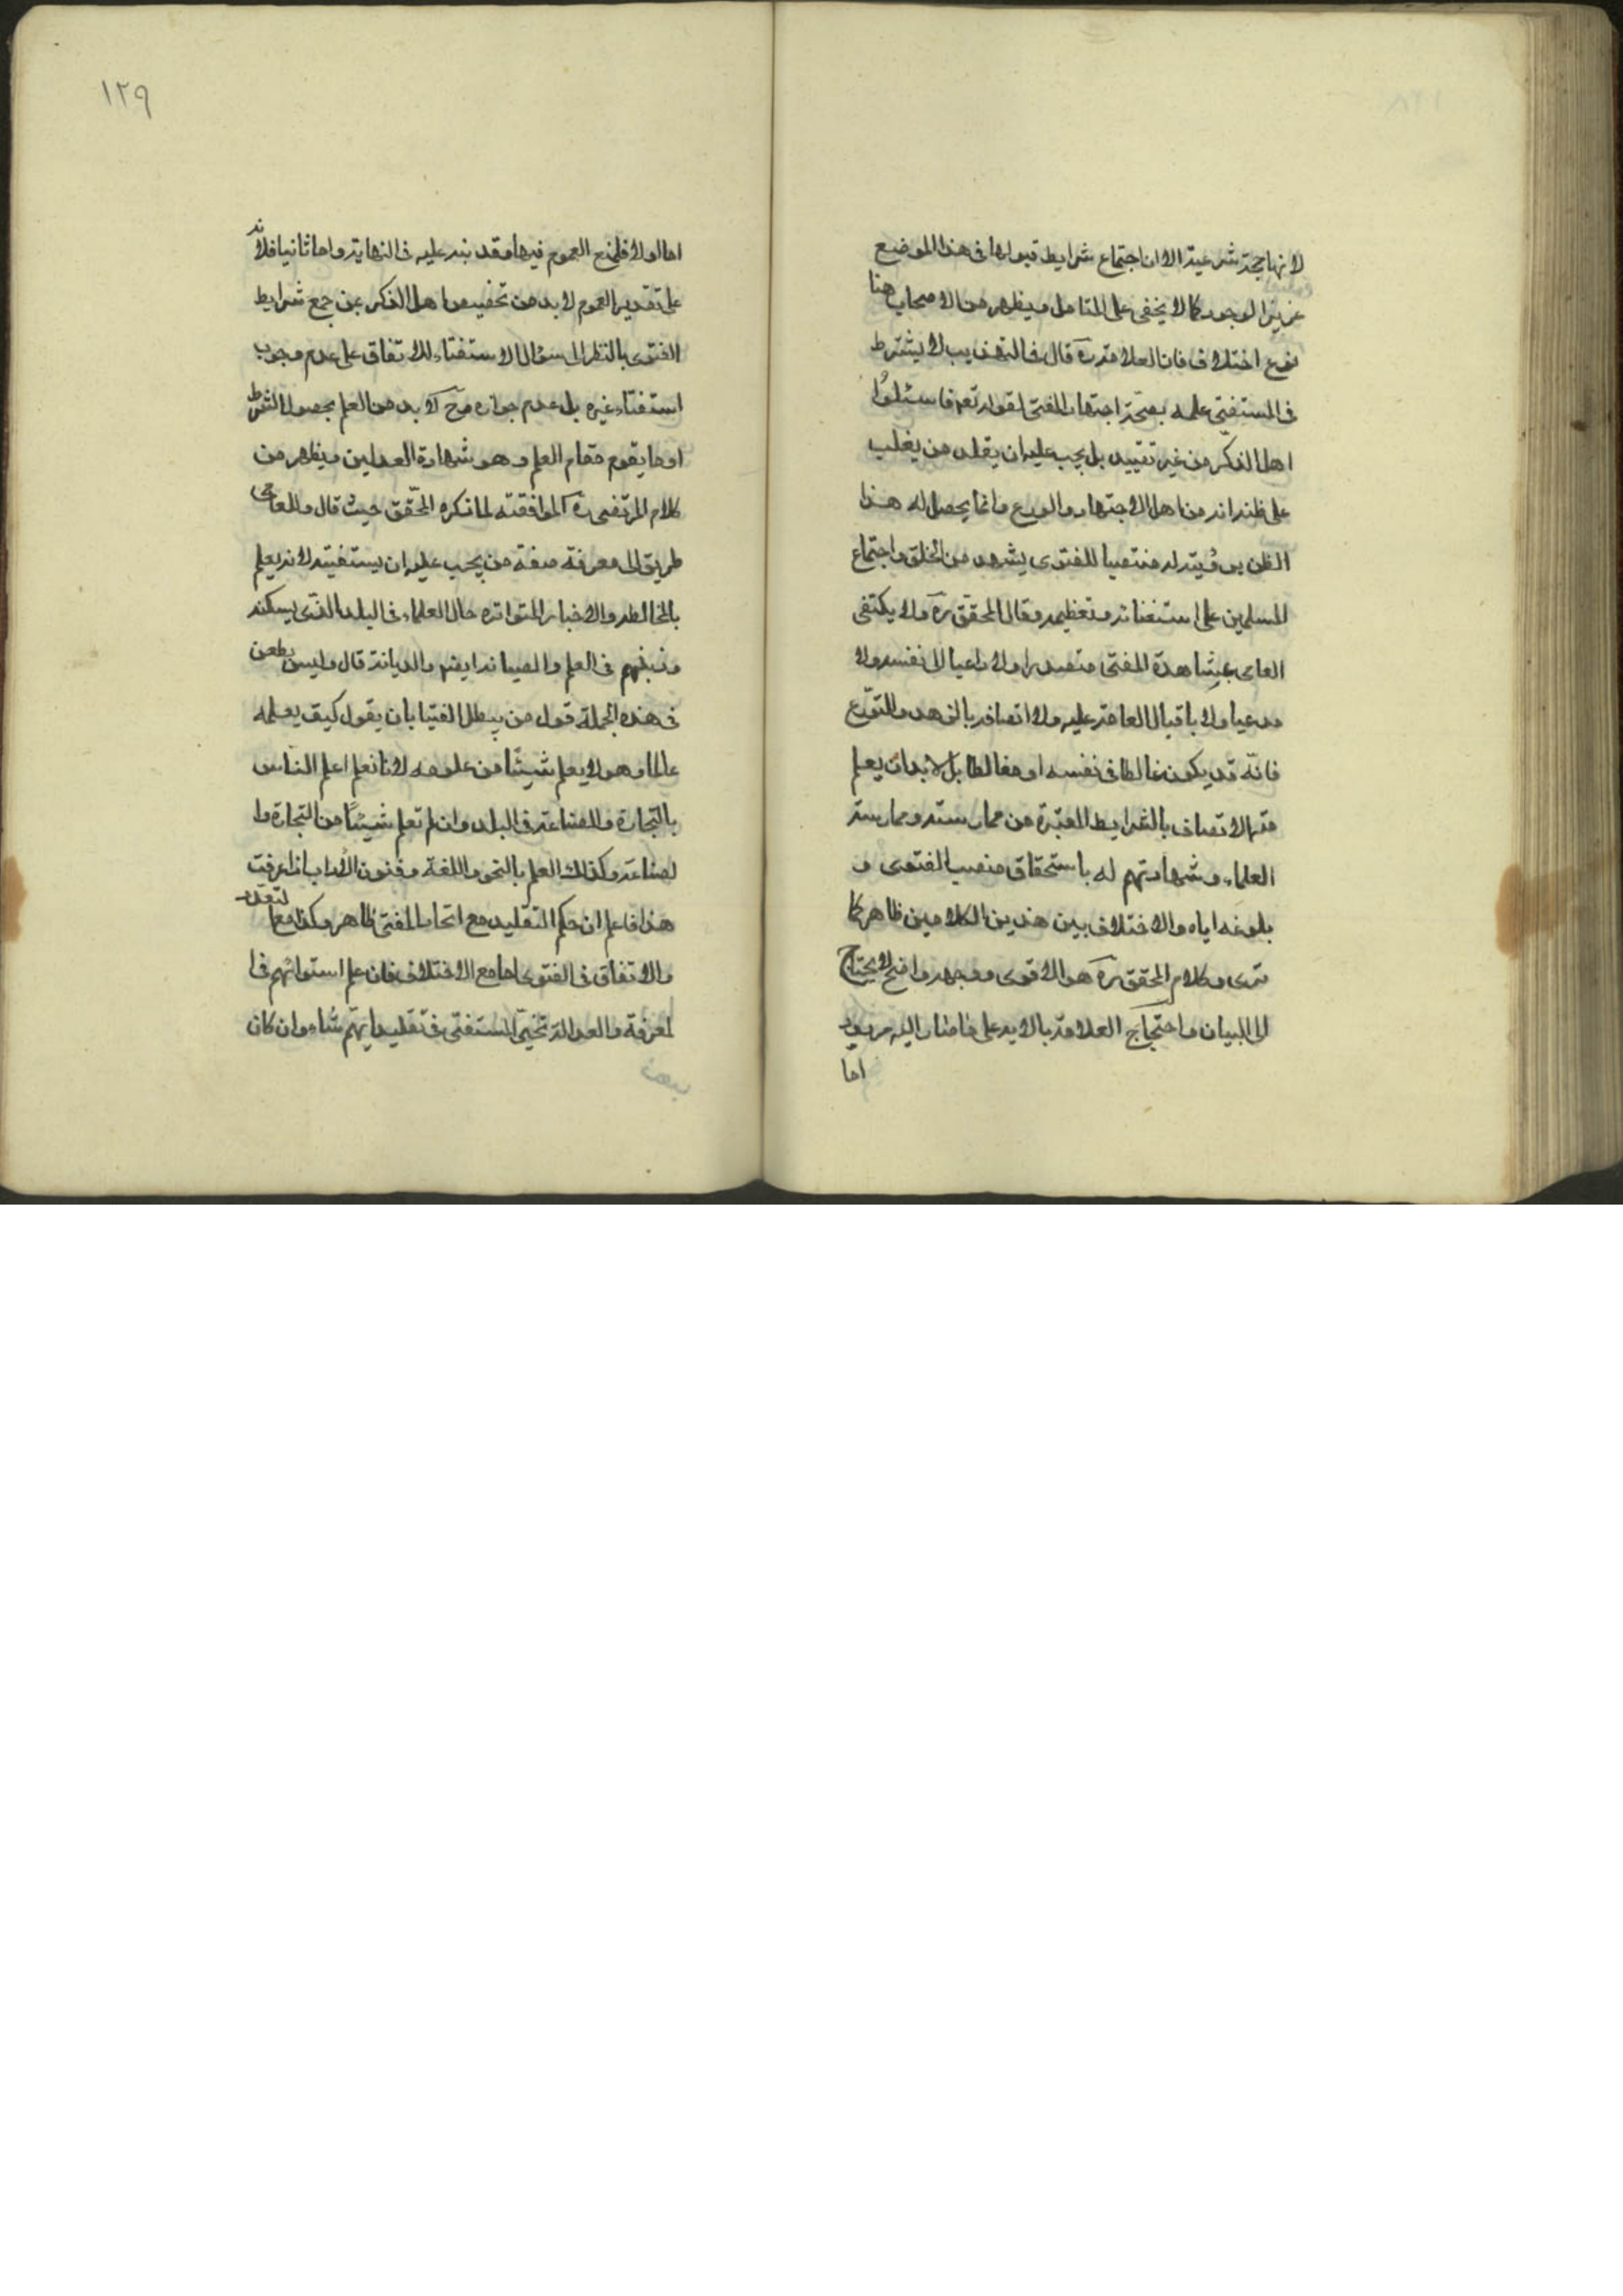 لانها حجة شرعية الا ان اجتماع شرايط قبولها فى هذا الموضع
عزيز الوجود كما لا يخفى على المتامل ويظهر من الاصحاب هنا
نوع اختلاف فان العلامة ره قال فى التهذيب لا يشترط
فى المستفتى علمه بصحة اجتهاد المفتى لقوله تعه فاسئلوا
اهل الذكر من غير تقييد بل يجب عليه ان يقلد من يغلب
على ظنه انه من اهل الاجتهاد والورع وانما يحصل له هذا
الظن برؤيته له منتصبا للفتوى بشهد من الخلق واجتماع
المسلمين على استفتائه وتعظيمه وقال المحقق ره ولا يكتفى
العامى بمشاهدة المفتى متصدرا ولا داعيا الى نفسه ولا
مدعيا ولا باقبال العامة عليه ولا اتصافه بالزهد والتورع
فانه قد يكون غالطا فى نفسه او مغالطا بل لابد ان يعلم
منه الاتصاف بالشرايط المعتبرة من ممارسته وممارسة
العلماء وشهادتهم له باستحقاق منصب الفتوى و
بلوغه اياه والاختلاف بين هذين الكلامين ظاهر كما
ترى وكلام المحقق ره هو الاقوى ووجهه واضح لا يحتاج
الى البيان واحتجاج العلامة بالاية على ما صار اليه مردود
اما
١٢٩
اما اولا فلمنع العموم فيها وقد نبه عليه فى النهاية واما ثانيا فلانه
على تقدير العموم لابد من تخصيص اهل الذكر بمن جمع شرايط
الفتوى بالنظر الى سؤال الاستفتاء للاتفاق على عدم وجوب
استفتاء غيره بل عدم جوازه وح لابد من العلم بحصول الشرط
او ما يقوم مقام العلم وهو شهادة العدلين ويظهر من
كلام المرتضى ره الموافقة لما ذكره المحقق حيث قال وللعامى
طريق الى معرفة صفة من يجب عليه ان يستفتيه لانه يعلم
بالمخالطة والاخبار المتواترة حال العلماء فى البلد الذى يسكنه
ورتبتهم فى العلم والصيانة ايضه والديانة قال وليس يطعن
فى هذه الجملة قول من يبطل الفتيا بان يقول كيف يعلمه
عالما وهو لا يعلم شيئا من علومه لانا نعلم اعلم الناس
بالتجارة والصناعة فى البلد وان لم نعلم شيئا من التجارة وا
لصناعة وكذلك العلم بالنحو واللغة وفنون الاداب اذا عرفت
هذا فاعلم ان حكم التقليد مع اتحاد المفتى ظاهر وكذا مع التعدد
والاتفاق فى الفتوى اما مع الاختلاف فان علم استوائهم فى ا
لمعرفة والعدالة تخير المستفتى فى تقليد ايهم شاء وان كان
بعض